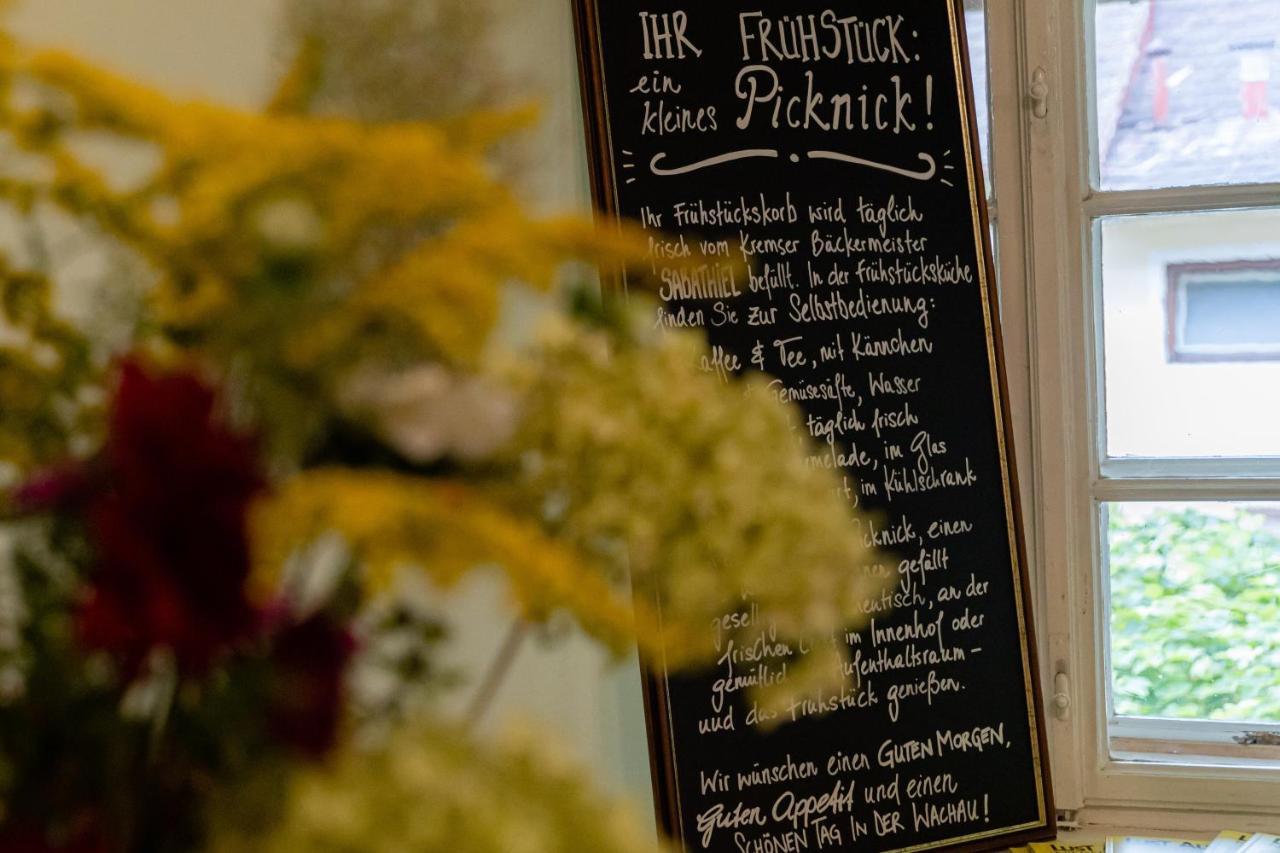 IHR FRÜHSTÜCK:
ein
kleines Picknick!
Ihr Frühstückskorb wird täglich
frisch vom Kremser Bäckermeister
SABATHIEL befüllt. In der Frühstücksküche
finden Sie zur Selbstbedienung:
& Tee, mit Kännchen
Gemüsesäfte, Wasser
täglich frisch
im Glas
im Kühlschrank
einen
gefällt
an der
frischen im Innenhof oder
und das Frühstück genießen.
Wir wünschen einen GUTEN MORGEN,
Guten Appetit und einen
SCHÖNEN TAG IN DER WACHAU!
LUST